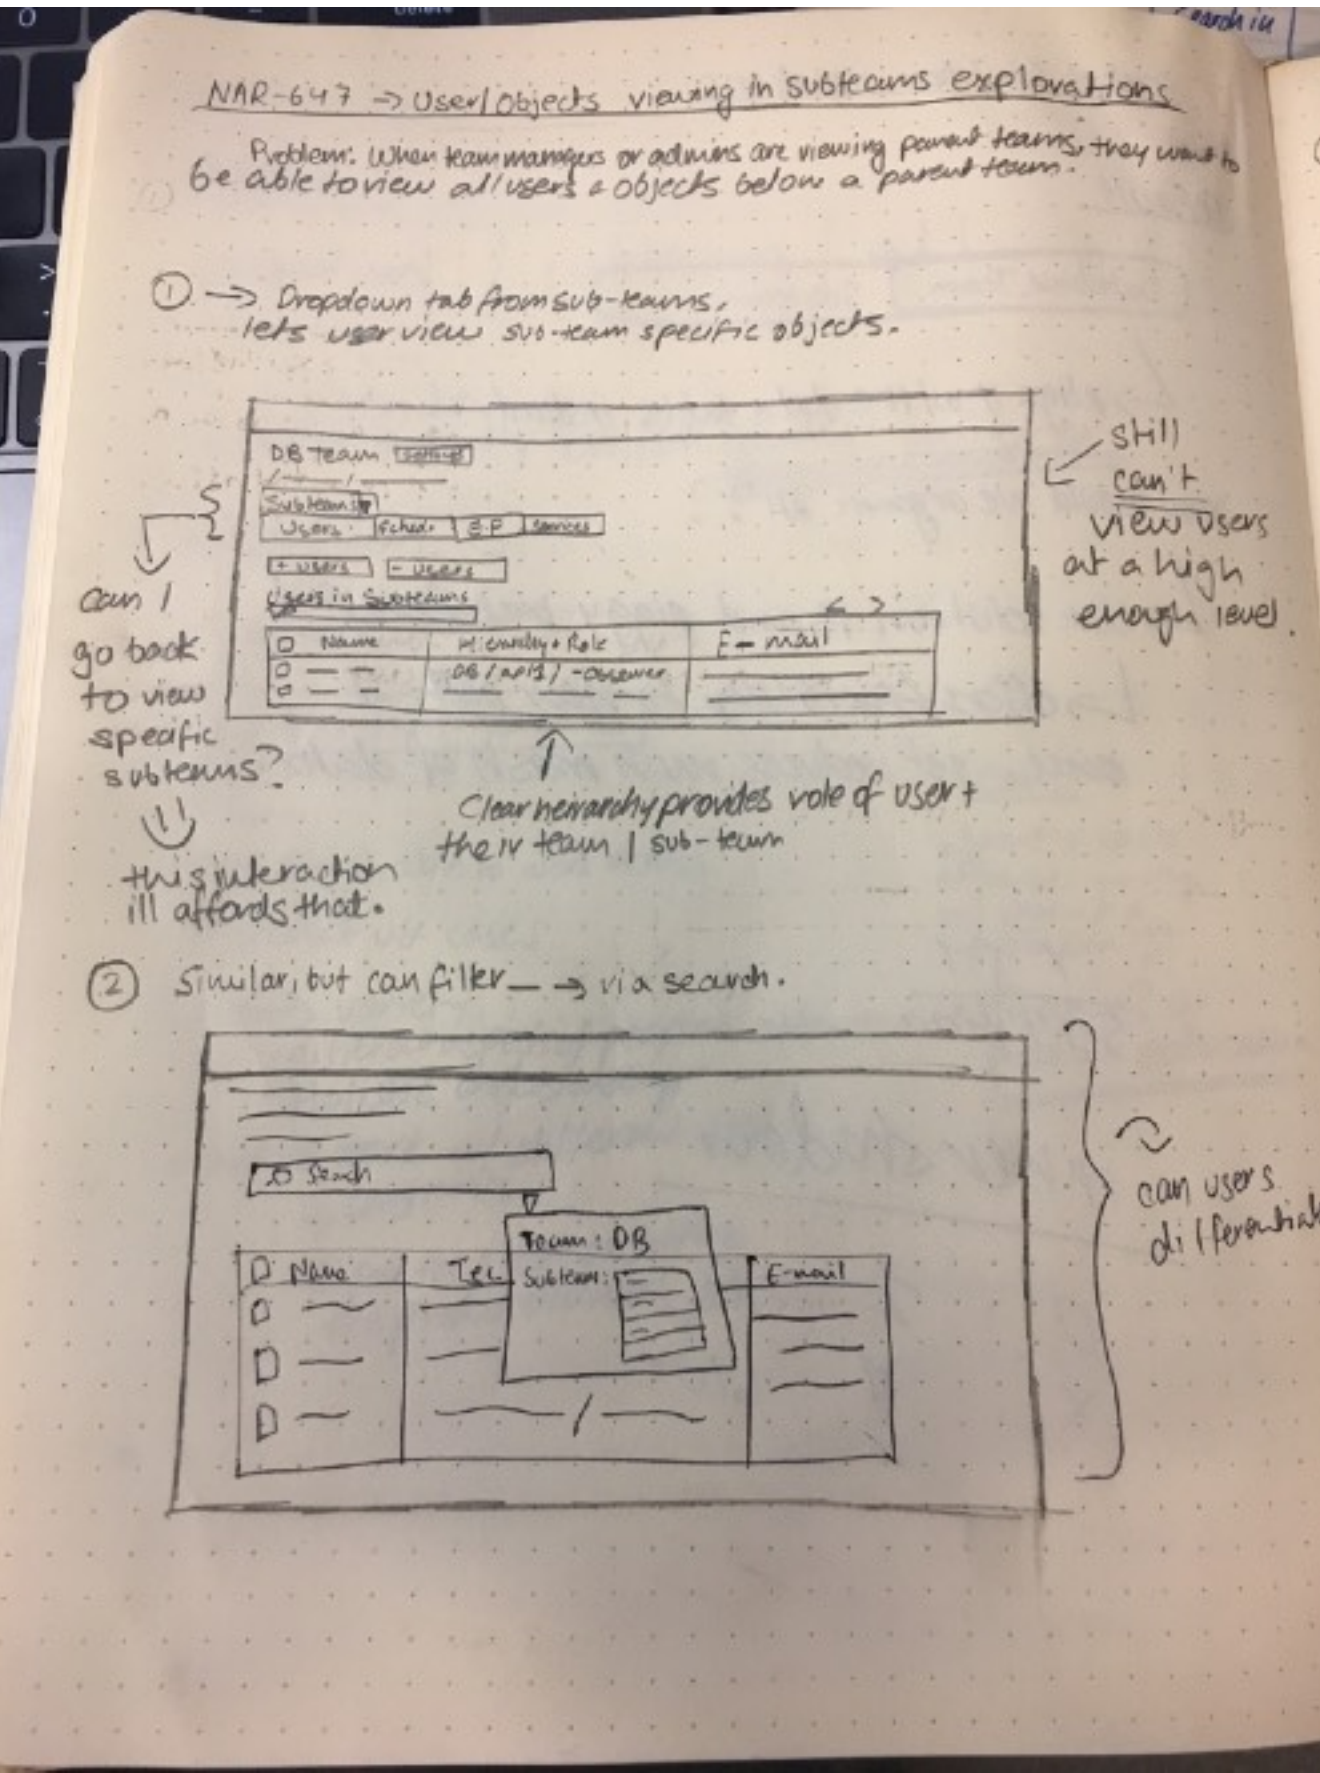 Search in
NAR-647 -> User/Objects viewing in subteams explorations
Problem: When team managers or admins are viewing parent teams, they want to
be able to view all users & objects below a parent team.
① -> Dropdown tab from sub-teams,
lets user view sub-team specific objects.
DB Team Settings
Subteams
Users Sched. E.P Services
+ users - users
Users in Subteams
< >
Name Hierarchy + Role E-mail
DB / api1 / - Observer
still
can't
view users
at a high
enough level.
can I
go back
to view
specific
subteams?
this interaction
ill affords that.
Clear heirarchy provides role of user +
their team / sub-team
② Similar, but can filter -> via search.
Search
Team: DB
Subteam:
Name Tea E-mail
can users
differential